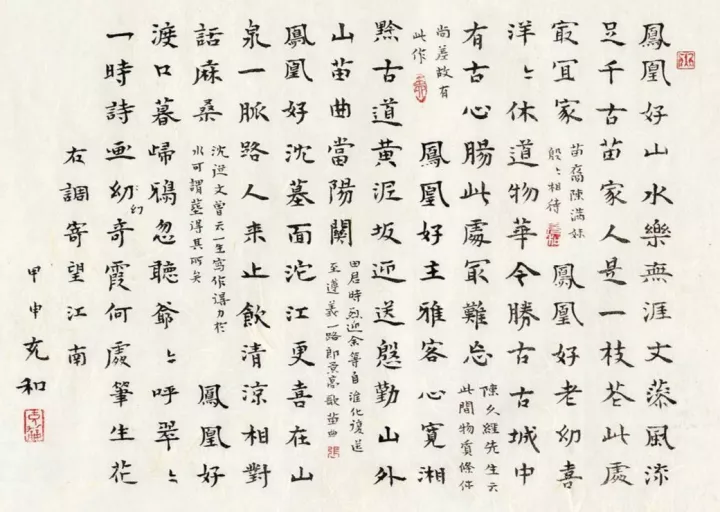 鳳凰好山水樂無涯文藻風流
足千古苗家人是一枝花此處
最宜家
苗裔陳滿妹
殷〻相待
鳳凰好老幼喜
洋〻休道物華今勝古古城中
有古心腸此處最難忘
陳久經先生云
此間物質條件
尚差故有
此作
鳳凰好主雅客心寬湘
黔古道黃泥坂迎送慇勤山外
山苗曲當陽關
田君時烈迎余等自淮化復送
至遵義一路高歌苗曲
鳳凰好沈墓面沱江更喜在山
泉一脈路人來止飲清涼相對
話麻桑
沈從文曾云一生寫作得力於
水可謂墓得其所矣
鳳凰好
渡口暮歸鴉忽聽爺〻呼翠〻
一時詩画幼奇霞何處筆生花
幻
右調寄望江南
甲申充和